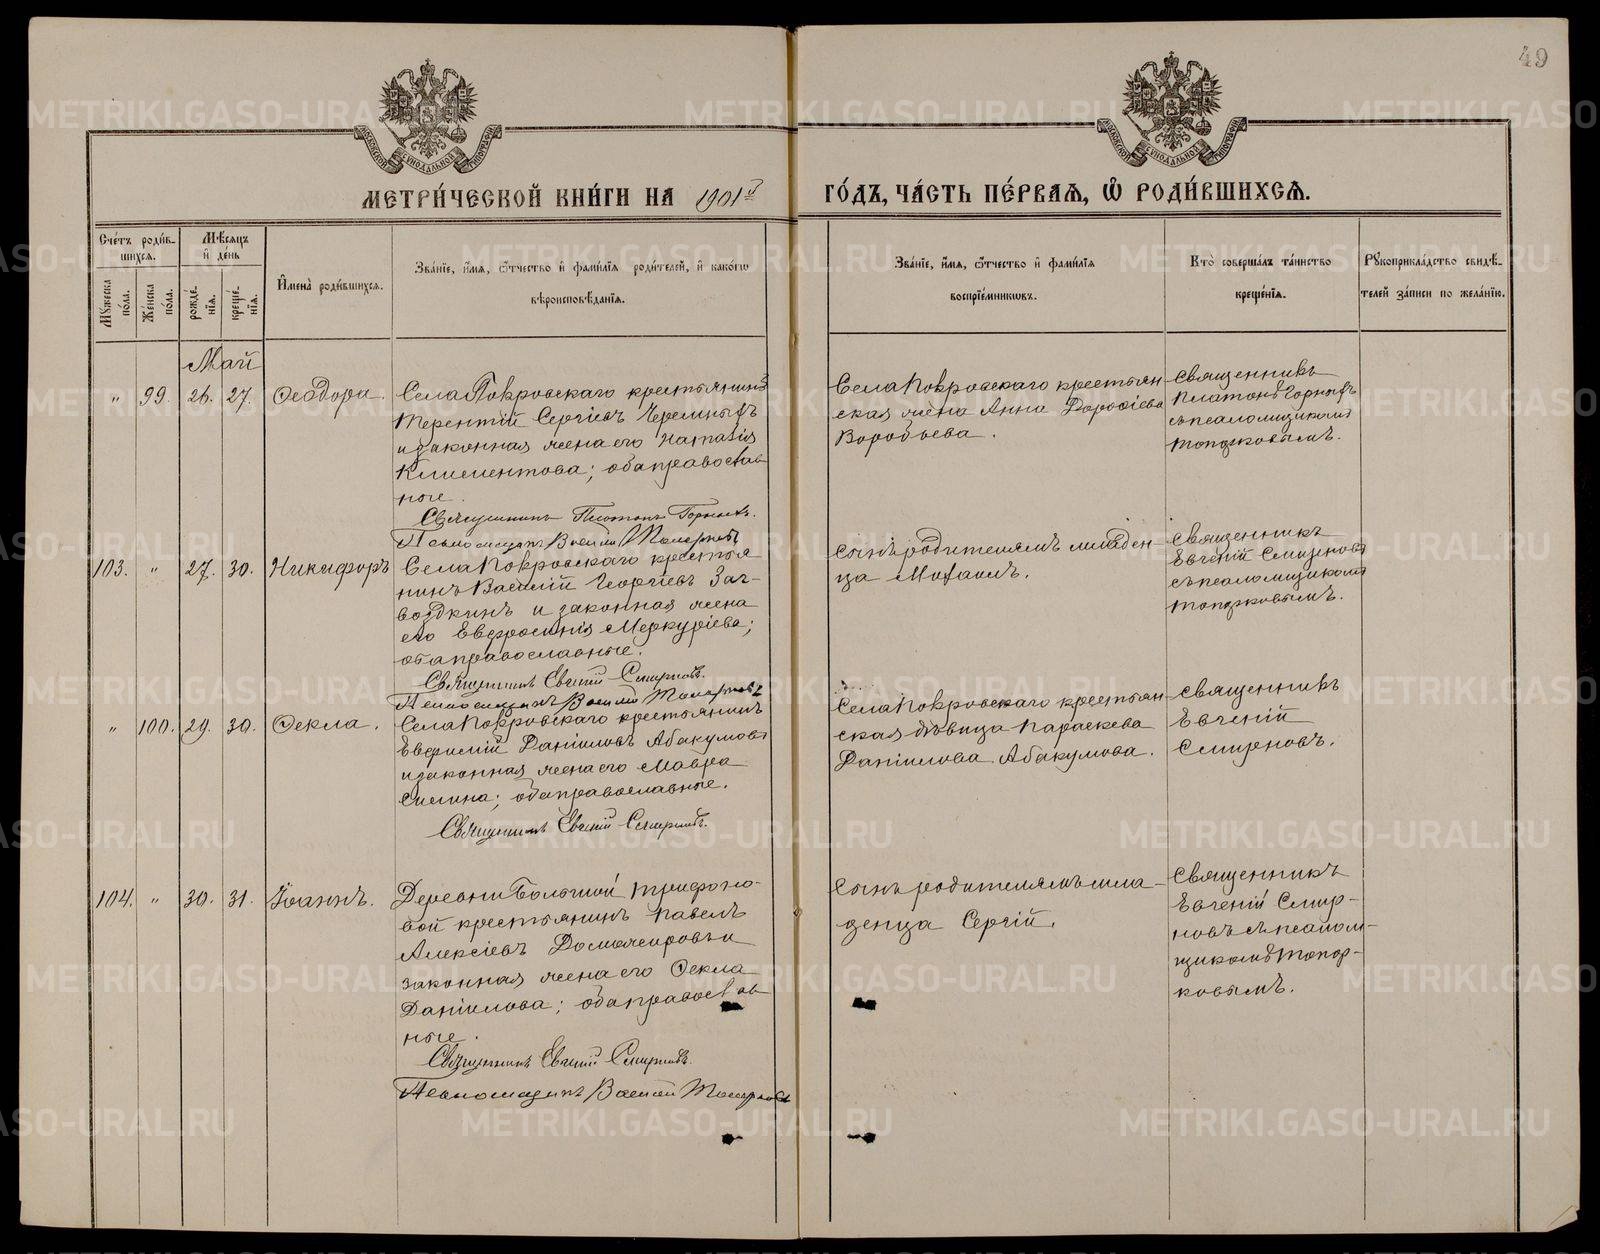 49
МОСКОВСКОЙ СУНОДАЛЬНОЙ ТИПОГРАФІИ
МОСКОВСКОЙ СУНОДАЛЬНОЙ ТИПОГРАФІИ
МЕТРИ́ЧЕСКОЙ КНИ́ГИ НА 1901й ГО́ДЪ, ЧА́СТЬ ПЕ́РВАЯ, Ѡ РОДИ́ВШИХСЯ.
Сче́тъ роди́в-
шихся.
Мѣ́сяцъ
и҆ де́нь
Мꙋжеска
по́ла.
Же́нска
по́ла.
рожде́-
нїя.
креще́-
нїя.
И҆мена̀ роди́вшихся.
Зва́нїе, и҆́мя, ѻ҆́тчество и҆ фами́лїя роди́телей, и҆ како́гѡ
вѣроисповѣ́данїя.
Зва́нїе, и҆́мя, ѻ҆́тчество и҆ фами́лїя
воспрїе́мникѡвъ.
Кто̀ соверша́лъ та́инство
креще́нїя.
Рꙋкоприкла́дство свидѣ́-
телей за́писи по жела́нїю.
Май
" 99. 26. 27. Ѳеодора.
Села Покровскаго крестьянинъ
Терентій Сергіевъ Черемныхъ
и законная жена его Наталія
Климентова; оба православ
ные.
Священникъ Платонъ Горныхъ.
Псаломщикъ Василій Топорковъ
Села Покровскаго крестьян
ская жена Анна Дороѳіева
Воробьева.
Священникъ
Платонъ Горныхъ
съ псаломщикомъ
Топорковымъ.
103. " 27. 30. Никифоръ
Села Покровскаго крестья
нинъ Василій Георгіевъ Заг-
воздкинъ и законная жена
его Евфросинія Меркуріева;
оба православные.
Священникъ Евгеній Смирновъ.
Псаломщикъ Василій Топорковъ
сынъ родителямъ младен-
ца Михаилъ.
Священникъ
Евгеній Смирновъ
съ псаломщикомъ
Топорковымъ.
" 100. 29. 30. Ѳекла.
Села Покровскаго крестьянинъ
Евфимій Даніиловъ Абакумовъ
и законная жена его Мавра
Силина; оба православные.
Священникъ Евгеній Смирновъ.
Села Покровскаго крестьян
ская дѣвица Параскева
Даніилова Абакумова.
Священникъ
Евгеній
Смирновъ.
104. " 30. 31. Іоаннъ.
Деревни Большой Трифоно-
вой крестьянинъ Павелъ
Алексіевъ Домажировъ и
законная жена его Ѳекла
Даніилова; оба православ
ные.
Священникъ Евгеній Смирновъ.
Псаломщикъ Василій Топорковъ
сынъ родителямъ мла-
денца Сергій.
Священникъ
Евгеній Смир-
новъ съ псалом-
щикомъ Топор-
ковымъ.